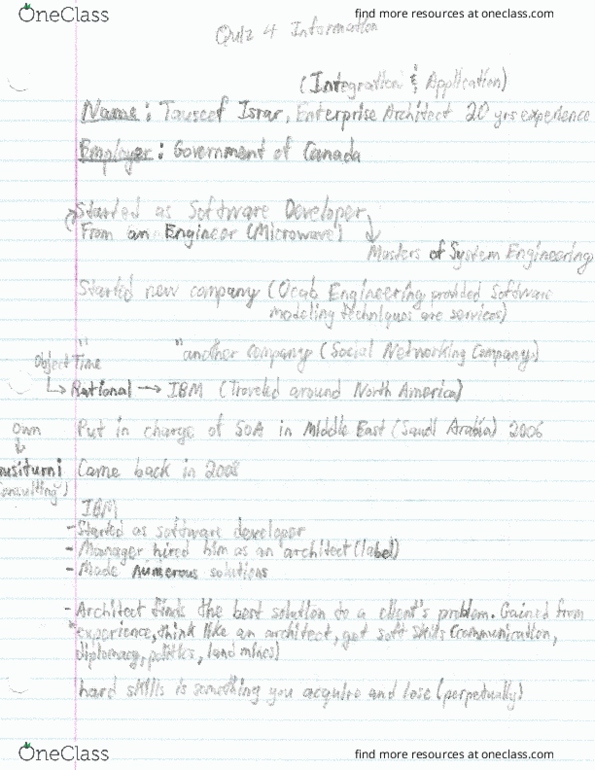 OneClass
find more resources at oneclass.com
Quiz 4 Information
(Integration & Application)
Name: Tauseef Israr, Enterprise Architect 20 yrs experience
Employer: Government of Canada
Started as Software Developer
From an Engineer (Microwave)
Masters of System Engineering
Started new company (Ocab Engineering provided Software
modeling technlques are services)
" "another company (Social Networking Company)
Object Time
Rational → IBM (Traveled around North America)
Own
Put in charge of SOA in Middle East (Saudi Arabia) 2006
Came back in 2008
Consulting)
IBM
- Started as software developer
- Manager hired him as an architect (label)
- Made numerous solutions
- Architect finds the best solution to a client's problem. Gained from
experience, think like an architect, get soft skills (communication,
diplomacy, politics, land mines)
hard skills is something you acquire and lose (perpetually)
OneClass
find more resources at oneclass.com